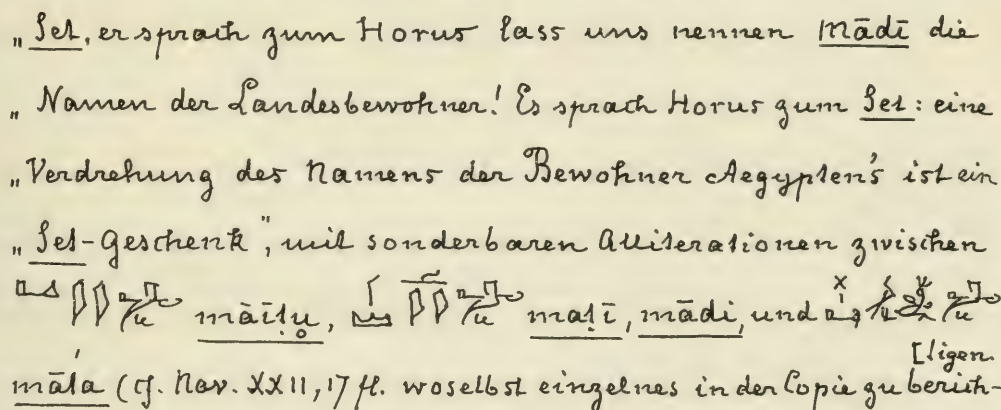 „Set, er sprach zum Horus lass uns nennen mādī die
„Namen der Landesbewohner! Es sprach Horus zum Set: eine
„Verdrehung des Namens der Bewohner Aegypten's ist ein
„Set-Geschenk", mit sonderbaren Alliterationen zwischen
māītu̥, maṭī, mādi, und
māta (cf. Nav. XXII, 17 fl. woselbst einzelnes in der Copie zu berich-
[tigen.